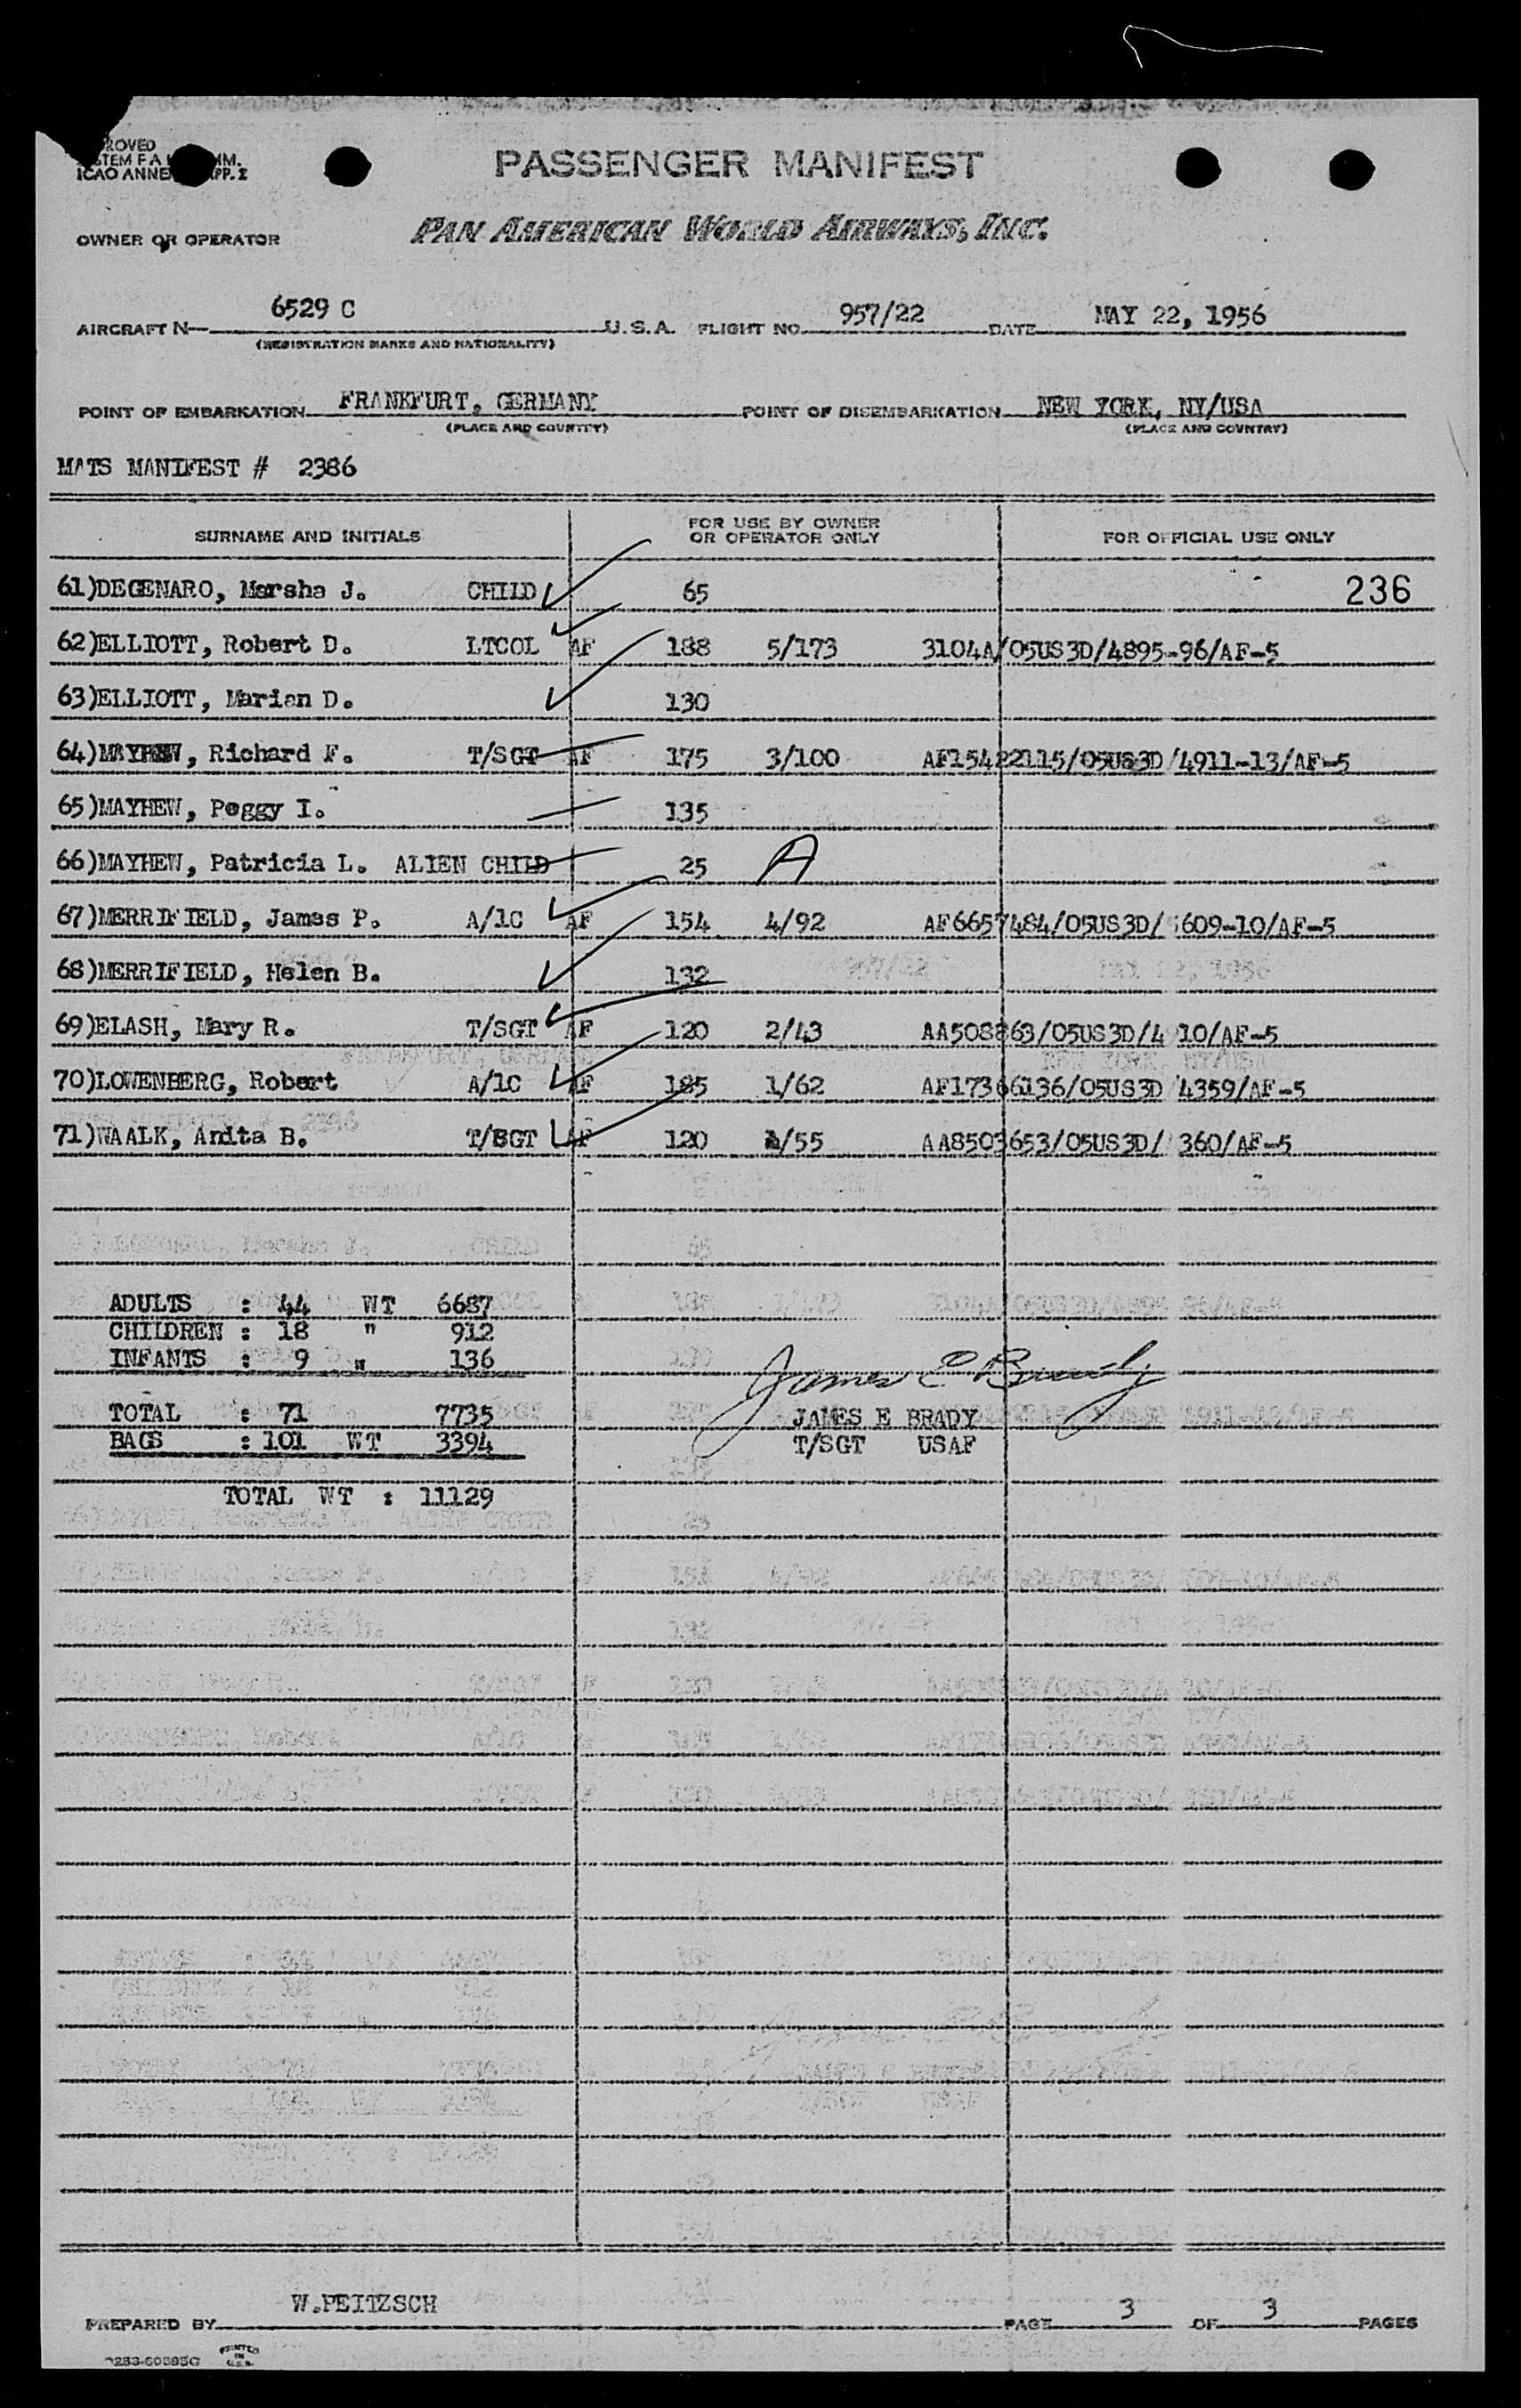 PASSENGER MANIFEST
OWNER OR OPERATOR PAN AMERICAN WORLD AIRWAYS, INC.
AIRCRAFT N— 6529 C U.S.A. FLIGHT NO. 957/22 DATE MAY 22, 1956
(REGISTRATION MARKS AND NATIONALITY)
POINT OF EMBARKATION FRANKFURT, GERMANY POINT OF DISEMBARKATION NEW YORK, NY/USA
(PLACE AND COUNTRY) (PLACE AND COUNTRY)
MATS MANIFEST # 2386
SURNAME AND INITIALS FOR USE BY OWNER OR OPERATOR ONLY FOR OFFICIAL USE ONLY
61)DEGENARO, Marsha J. CHILD 65 236
62)ELLIOTT, Robert D. LTCOL AF 188 5/173 3104A/05US3D/4895-96/AF-5
63)ELLIOTT, Marian D. 130
64)MAYHEW, Richard F. T/SGT AF 175 3/100 AF15422115/05US3D/4911-13/AF-5
65)MAYHEW, Peggy I. 135
66)MAYHEW, Patricia L. ALIEN CHILD 25 A
67)MERRIFIELD, James P. A/1C AF 154 4/92 AF6657484/05US3D/ 609-10/AF-5
68)MERRIFIELD, Helen B. 132
69)ELASH, Mary R. T/SGT AF 120 2/43 AA508863/05US3D/4 10/AF-5
70)LOWENBERG, Robert A/1C AF 185 1/62 AF17366136/05US3D 4359/AF-5
71)WAALK, Anita B. T/SGT AF 120 /55 AA8503653/05US3D/ 360/AF-5
ADULTS : 44 WT 6687
CHILDREN : 18 " 912
INFANTS : 9 " 136
James E Brady
TOTAL : 71 7735 JAMES E BRADY
BAGS : 101 WT 3394 T/SGT USAF
TOTAL WT : 11129
PREPARED BY W.PEITZSCH PAGE 3 OF 3 PAGES
PRINTED IN U.S.A.